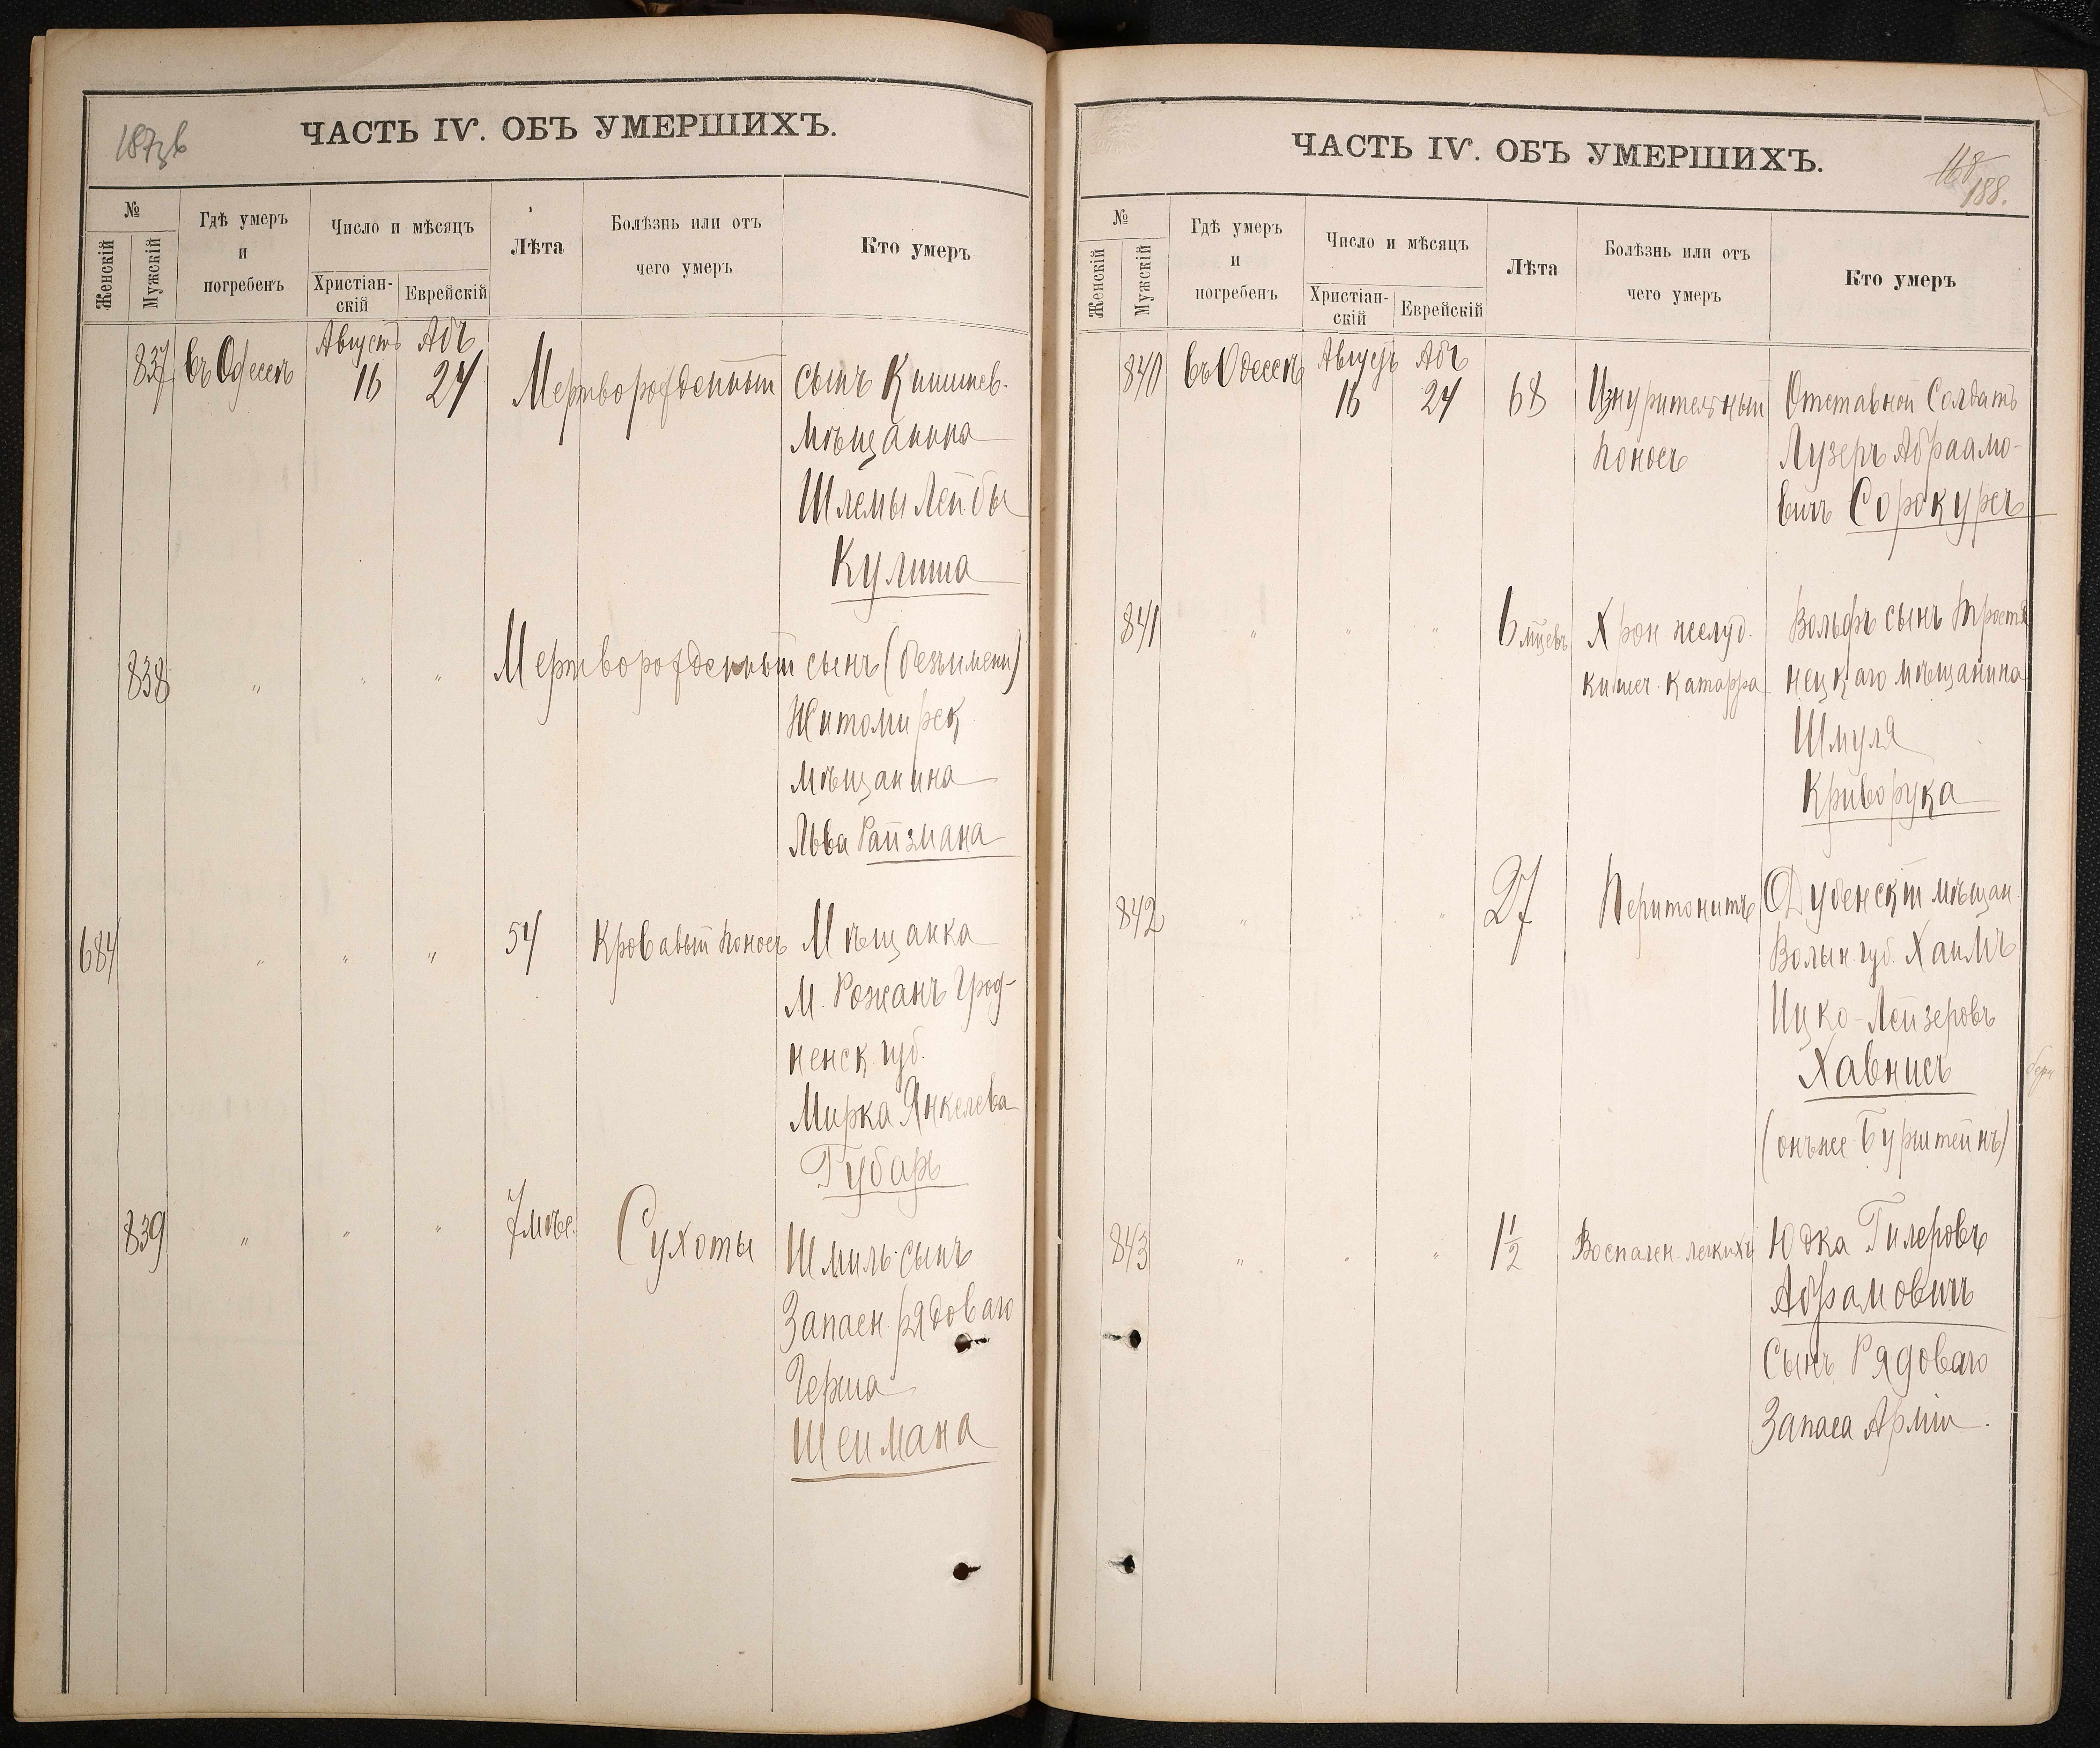 187зв
ЧАСТЬ IV. ОБЪ УМЕРШИХЪ.
№
Женскій
Мужскій
Гдѣ умеръ
и
погребенъ
Число и мѣсяцъ
Христіан-
скій
Еврейскій
Лѣта
Болѣзнь или отъ
чего умеръ
Кто умеръ
837 въ Одессѣ Августъ 16 Абъ 24 Мертворожденный сынъ Кишинев.
мѣщанина
Шлемы Лейбы
Кулиша
838 " " " Мертворожденный сынъ (безъ имени)
Житомирск
мѣщанина
Льва Райзмана
684 " " " 54 Кровавый поносъ Мѣщанка
М. Рожанъ Грод-
ненск. губ.
Мирка Янкелева
Губаръ
839 " " " 7 мѣс. Сухоты Шмиль сынъ
Запасн. рядоваго
Герша
Шеймана
ЧАСТЬ IV. ОБЪ УМЕРШИХЪ.
168
188.
№
Женскій
Мужскій
Гдѣ умеръ
и
погребенъ
Число и мѣсяцъ
Христіан-
скій
Еврейскій
Лѣта
Болѣзнь или отъ
чего умеръ
Кто умеръ
840 въ Одессѣ Августъ 16 Абъ 24 68 Изнурительный Отставной Солдатъ
поносъ Лузеръ Абраамо-
вичъ Сорокуръ
841 " " " 6 мцевъ Хрон. желуд. Вольфъ сынъ Тростя
кишеч. катарра нецкаго мѣщанина
Шмуля
Криворука
842 " " " 27 Перитонитъ Дубенскій мѣщан.
Волын. губ. Хаимъ
Ицко-Лейзеровъ
Хавнисъ
(онъже Бурштейнъ)
843 " " " 1½ Воспален. легкихъ Юдка Гилеровъ
Абрамовичъ
Сынъ Рядоваго
Запаса Арміи.